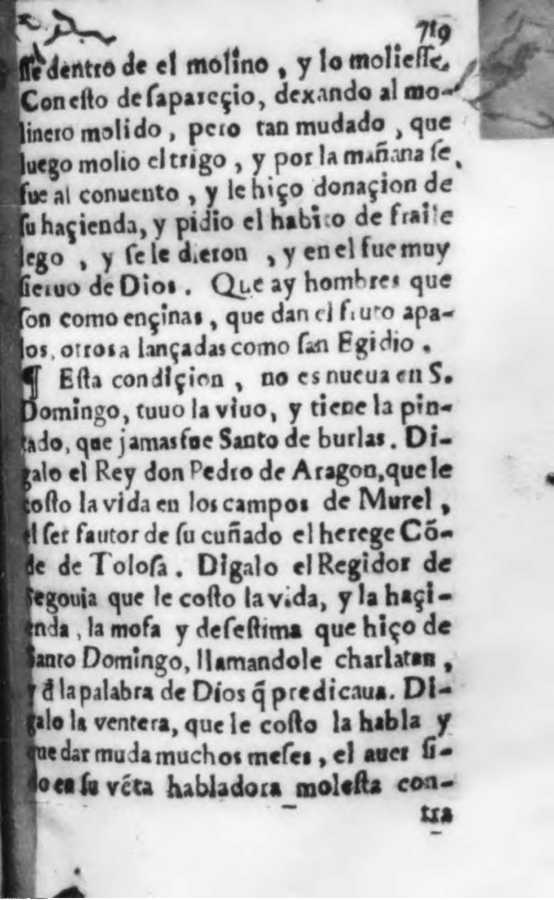 719
sse dentro de el molino, y lo moliesse.
Con esto desapareçio, dexando al mo-
linero molido, pero tan mudado, que
luego molio el trigo, y por la mañana se
fue al conuento, y le hiço donaçion de
su haçienda, y pidio el habito de fraile
lego, y se le dieron, y en el fue muy
sieruo de Dios. Que ay hombres que
son como ençinas, que dan el fruto apa-
los, otros a lançadas como san Egidio.
¶ Esta condiçion, no es nueua en S.
Domingo, tuuo la viuo, y tiene la pin-
tado, que jamas fue Santo de burlas. Di-
galo el Rey don Pedro de Aragon, que le
costo la vida en los campos de Murel,
el ser fautor de su cuñado el herege Cõ-
de de Tolosa. Digalo el Regidor de
Segouia que le costo la vida, y la haçi-
enda, la mofa y desestima que hiço de
Santo Domingo, llamandole charlatan,
y đ la palabra de Dios q̃ predicaua. Di-
galo la ventera, que le costo la habla y
quedar muda muchos meses, el auer si-
do en su vẽta habladora molesta con-
tra